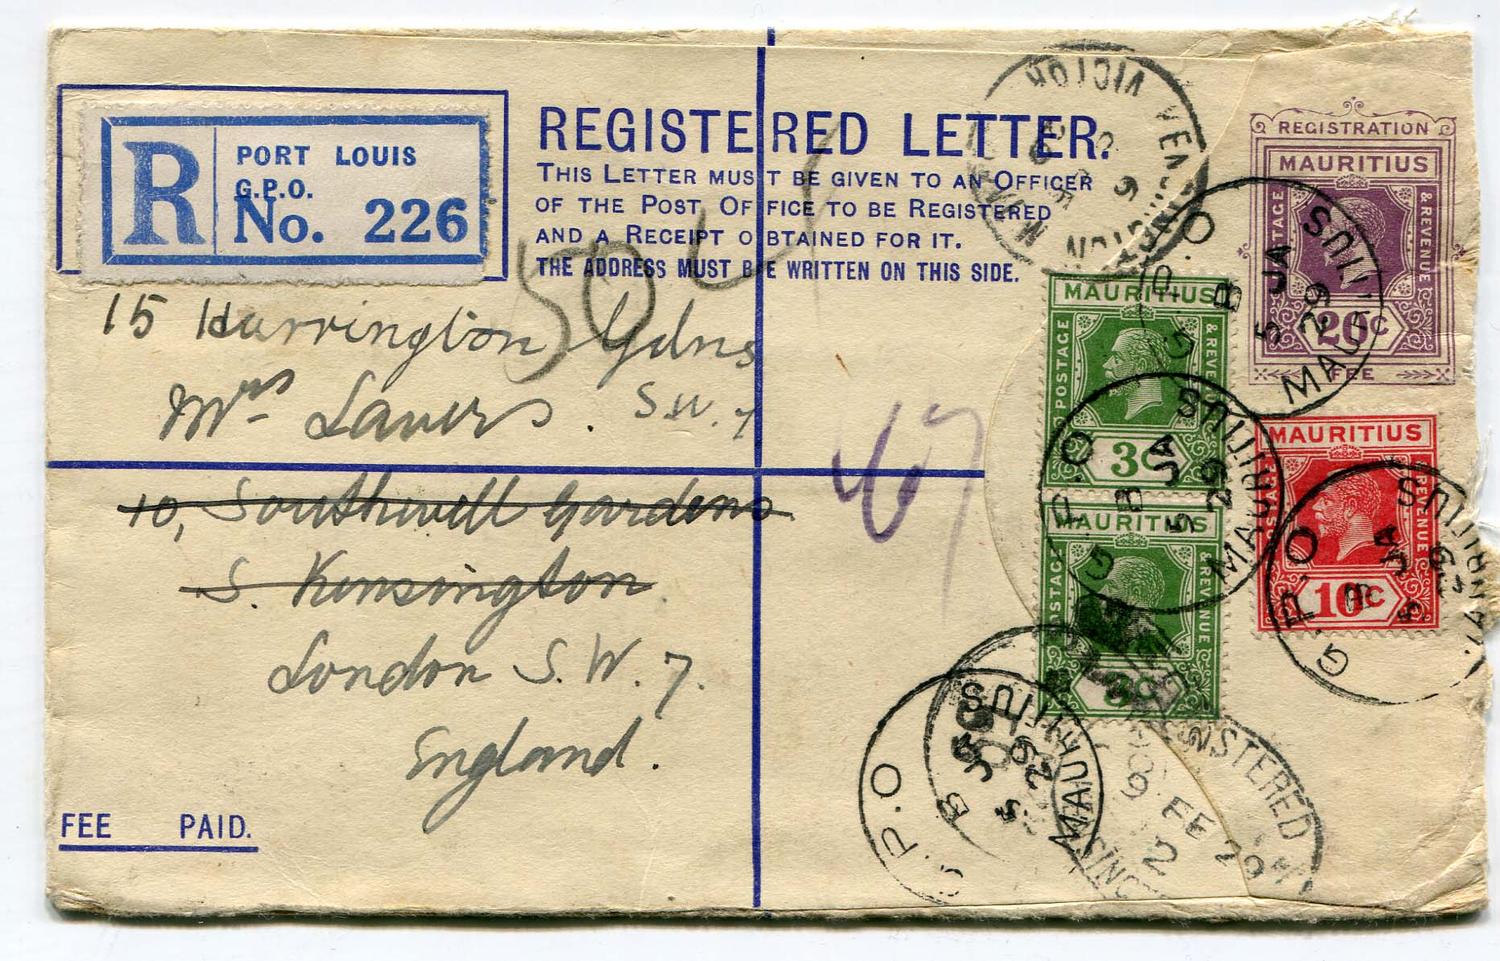 R
PORT LOUIS
G.P.O.
No. 226
REGISTERED LETTER.
THIS LETTER MUST BE GIVEN TO AN OFFICER
OF THE POST OFFICE TO BE REGISTERED
AND A RECEIPT OBTAINED FOR IT.
THE ADDRESS MUST BE WRITTEN ON THIS SIDE.
15 Harrington Gdns
S.W. 7
Mrs Lavers.
10, Southwell Gardens
S. Kensington.
London S.W. 7.
England.
FEE PAID.
50
67
REGISTRATION
MAURITIUS
POSTAGE
& REVENUE
20c
FEE
MAURITIUS
POSTAGE
& REVENUE
3c
MAURITIUS
POSTAGE
& REVENUE
3c
MAURITIUS
POSTAGE
& REVENUE
10c
G.P.O
MAURITIUS
B
5 JA
29
G.P.O
MAURITIUS
B
5 JA
29
G.P.O
MAURITIUS
B
5 JA
29
G.P.O
MAURITIUS
B
5 JA
29
REGISTERED
9 FE 29